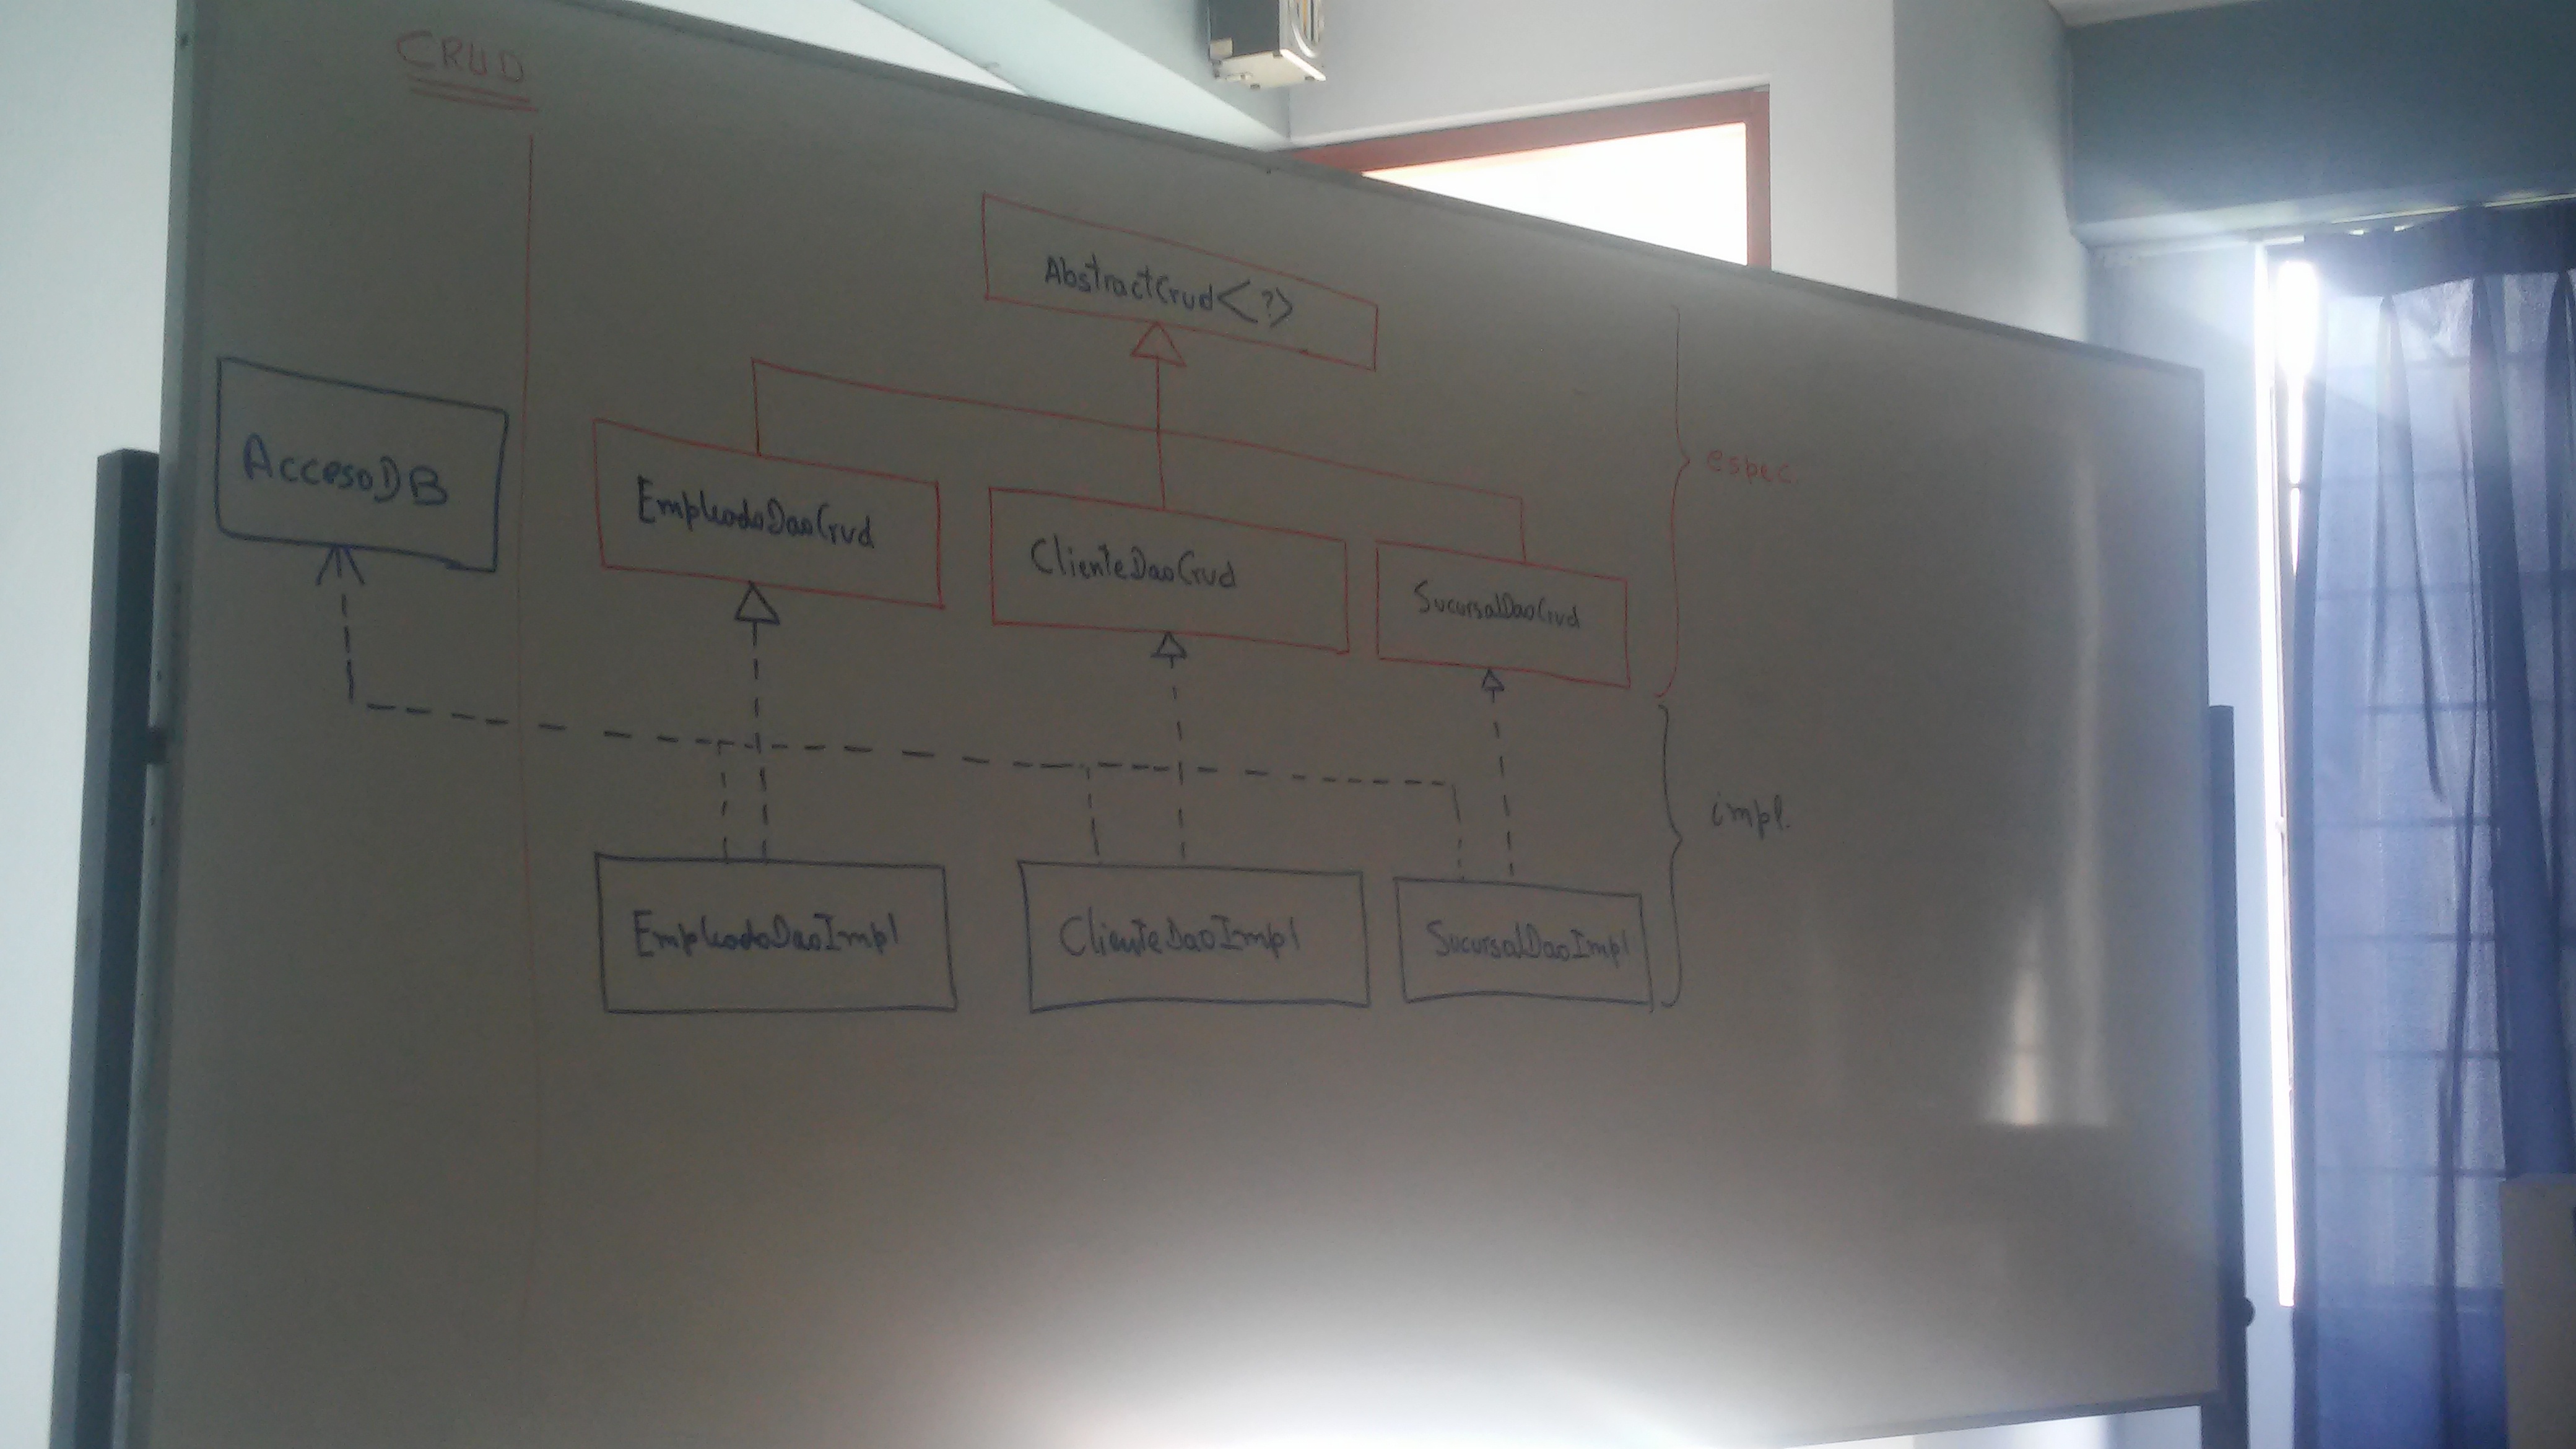 CRUD
AbstractCrud<?>
AccesoDB
EmpleadoDaoCrud
ClienteDaoCrud
SucursalDaoCrud
espec.
impl.
EmpleadoDaoImpl
ClienteDaoImpl
SucursalDaoImpl